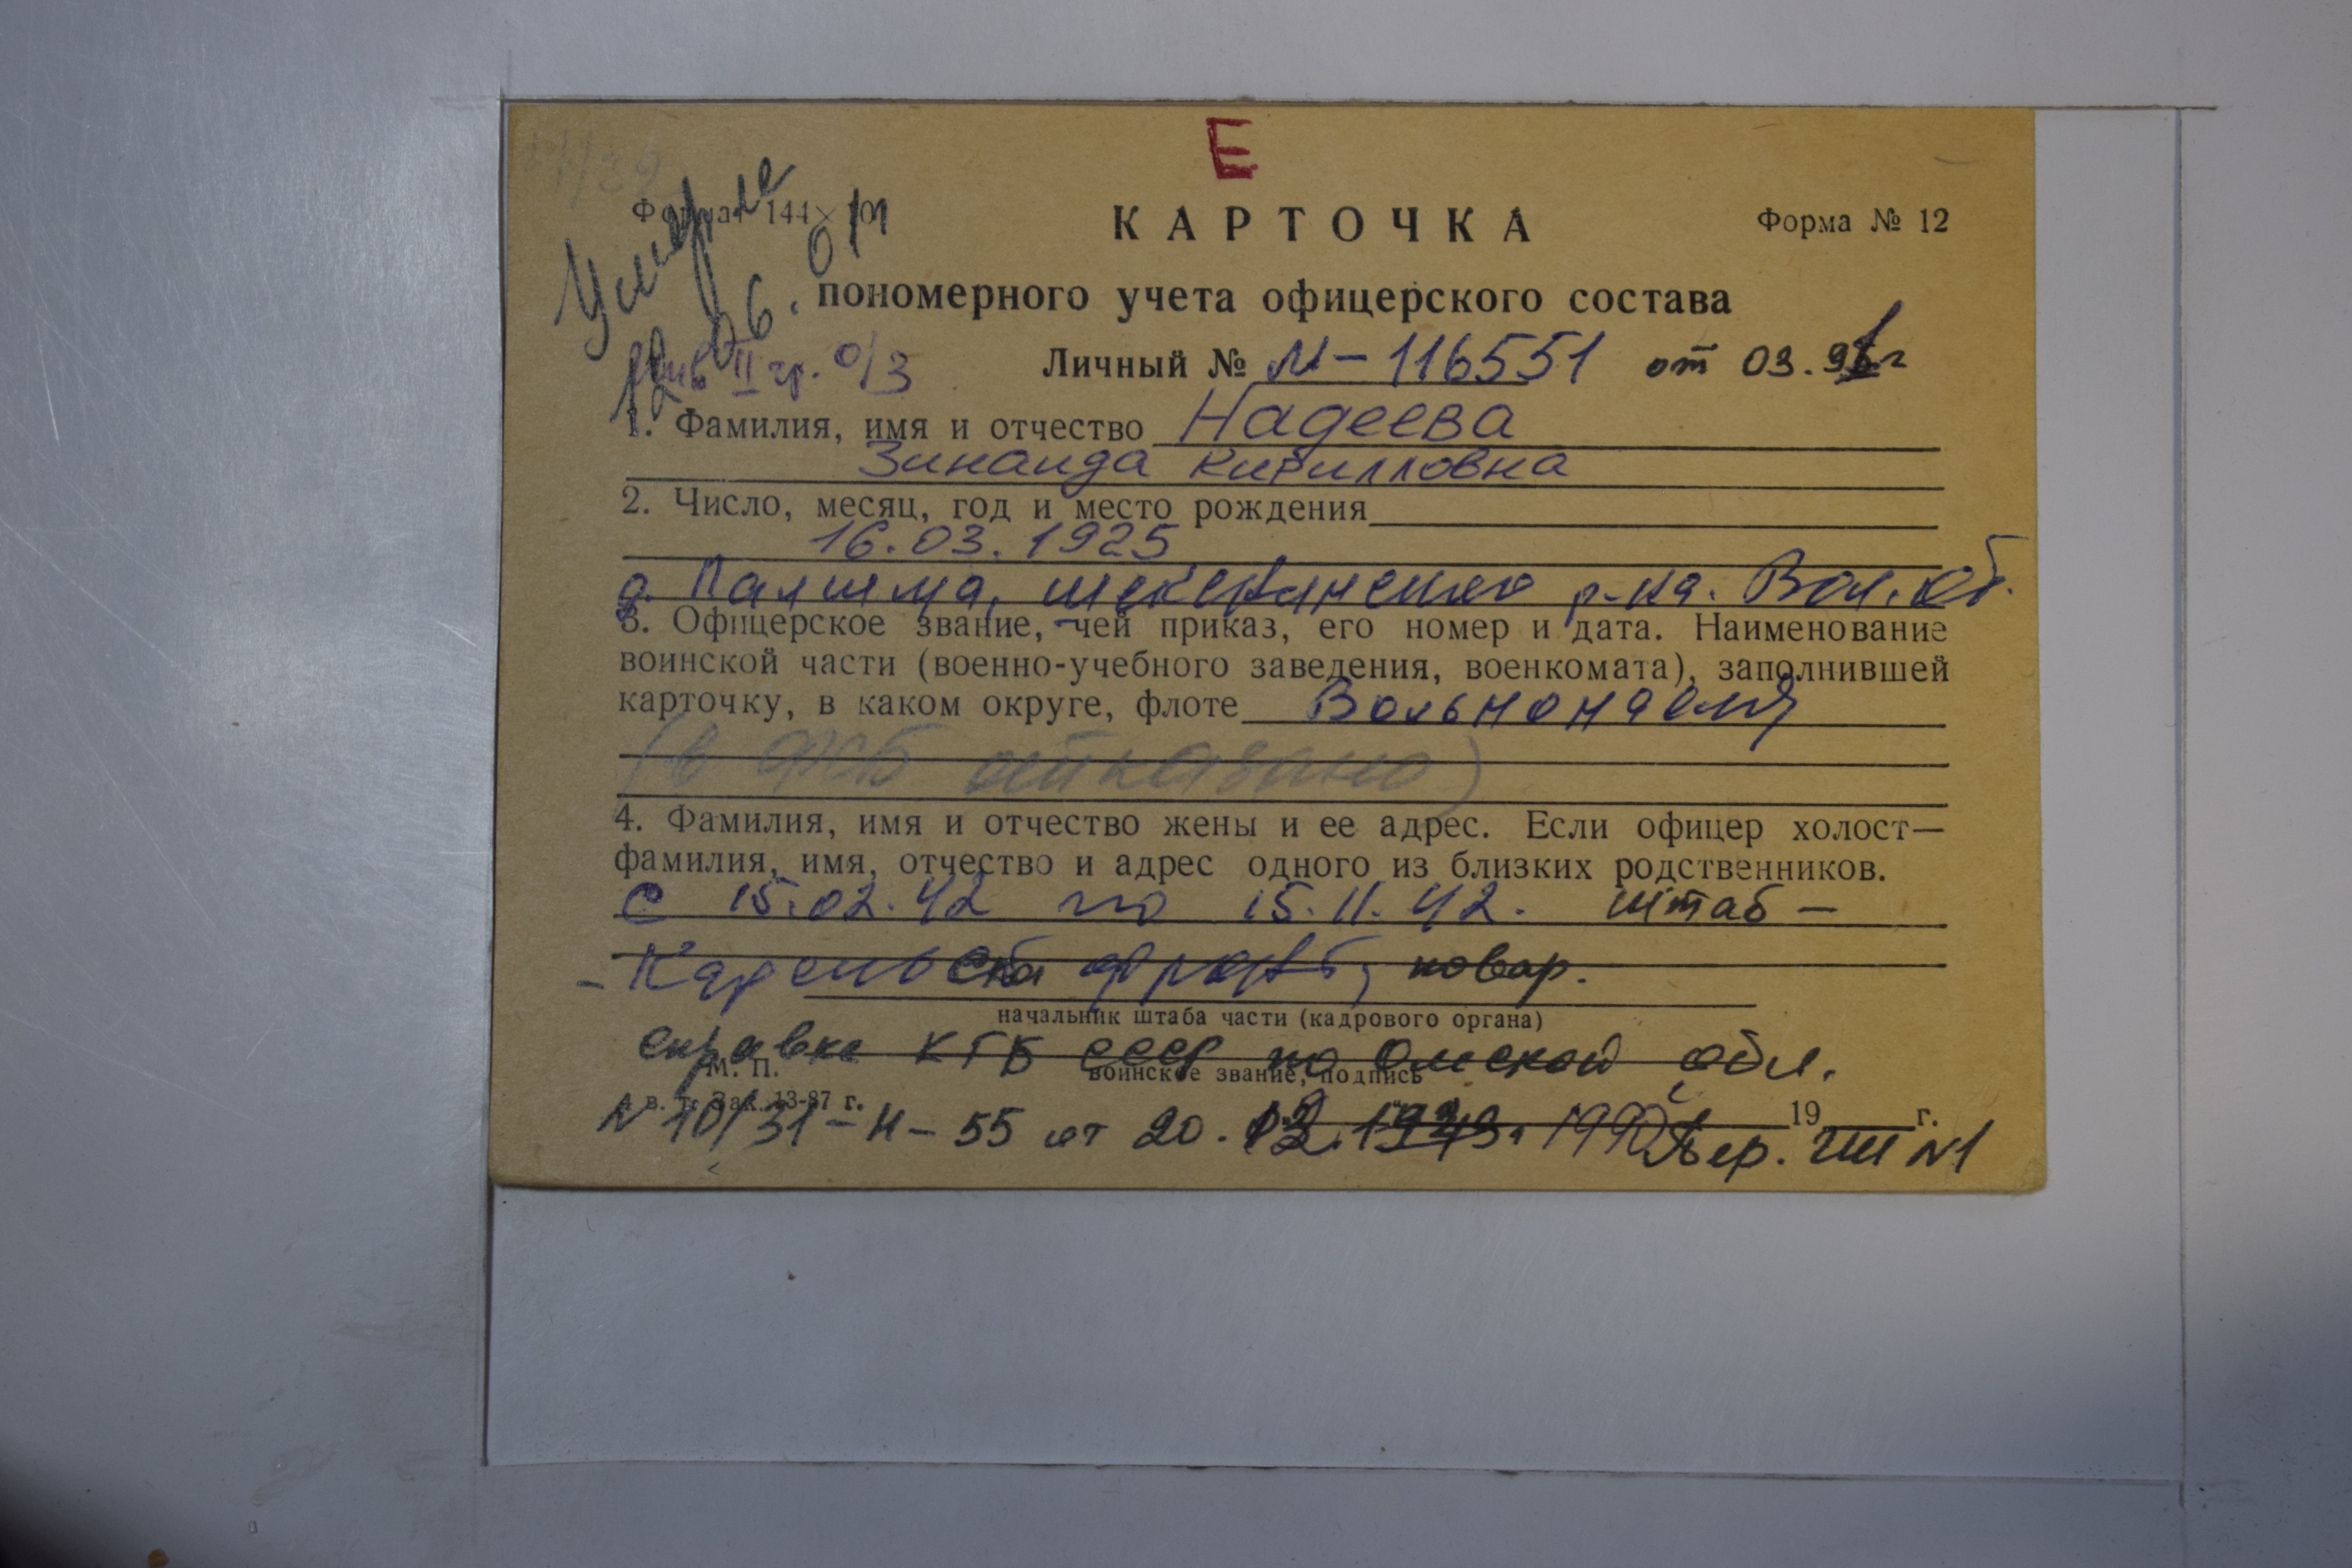 Е
Формат 144×101
КАРТОЧКА
Форма № 12
Умерла
12.06.01
пономерного учета офицерского состава
инв II гр. о/з
Личный № М-116551 от 03.91г
1. Фамилия, имя и отчество Надеева
Зинаида Кирилловна
2. Число, месяц, год и место рождения
16.03.1925
д. Палшма, р-на. Вол. об.
3. Офицерское звание, чей приказ, его номер и дата. Наименование
воинской части (военно-учебного заведения, военкомата), заполнившей
карточку, в каком округе, флоте Вольнонаемн
(в ФСБ отказано)
4. Фамилия, имя и отчество жены и ее адрес. Если офицер холост—
фамилия, имя, отчество и адрес одного из близких родственников.
с 15.02.42 по 15.11.42. штаб -
- Карельск фронт, повар.
начальник штаба части (кадрового органа)
справка КГБ СССР по Омской обл.
М. П.
воинское звание, подпись
в. т. Зак. 13-87 г.
19 г.
N 10/31-Н-55 от 20. 1990 пер. УШ N1